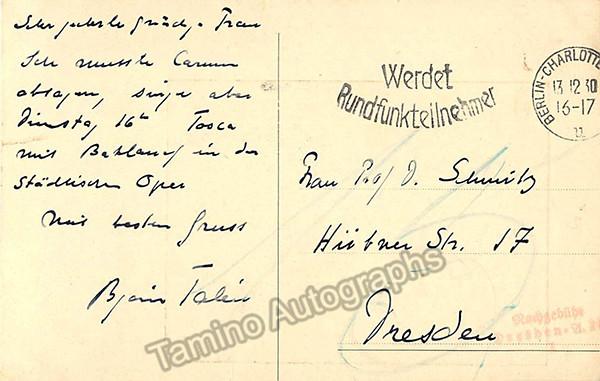 Sehr geehrte gnädige Frau
Ich musste Carmen
absagen, singe aber
Dienstag 16ten Tosca
mit Baklanoff in der
Städtischen Oper
Mit besten Gruss
Björn Talén
Werdet
Rundfunkteilnehmer
BERLIN-CHARLOTTE
13.12.30
16-17
Frau Prof. D. Schmitz
Hübner Str. 17
Dresden
Nachgebühr
Dresden-A.
Tamino Autographs